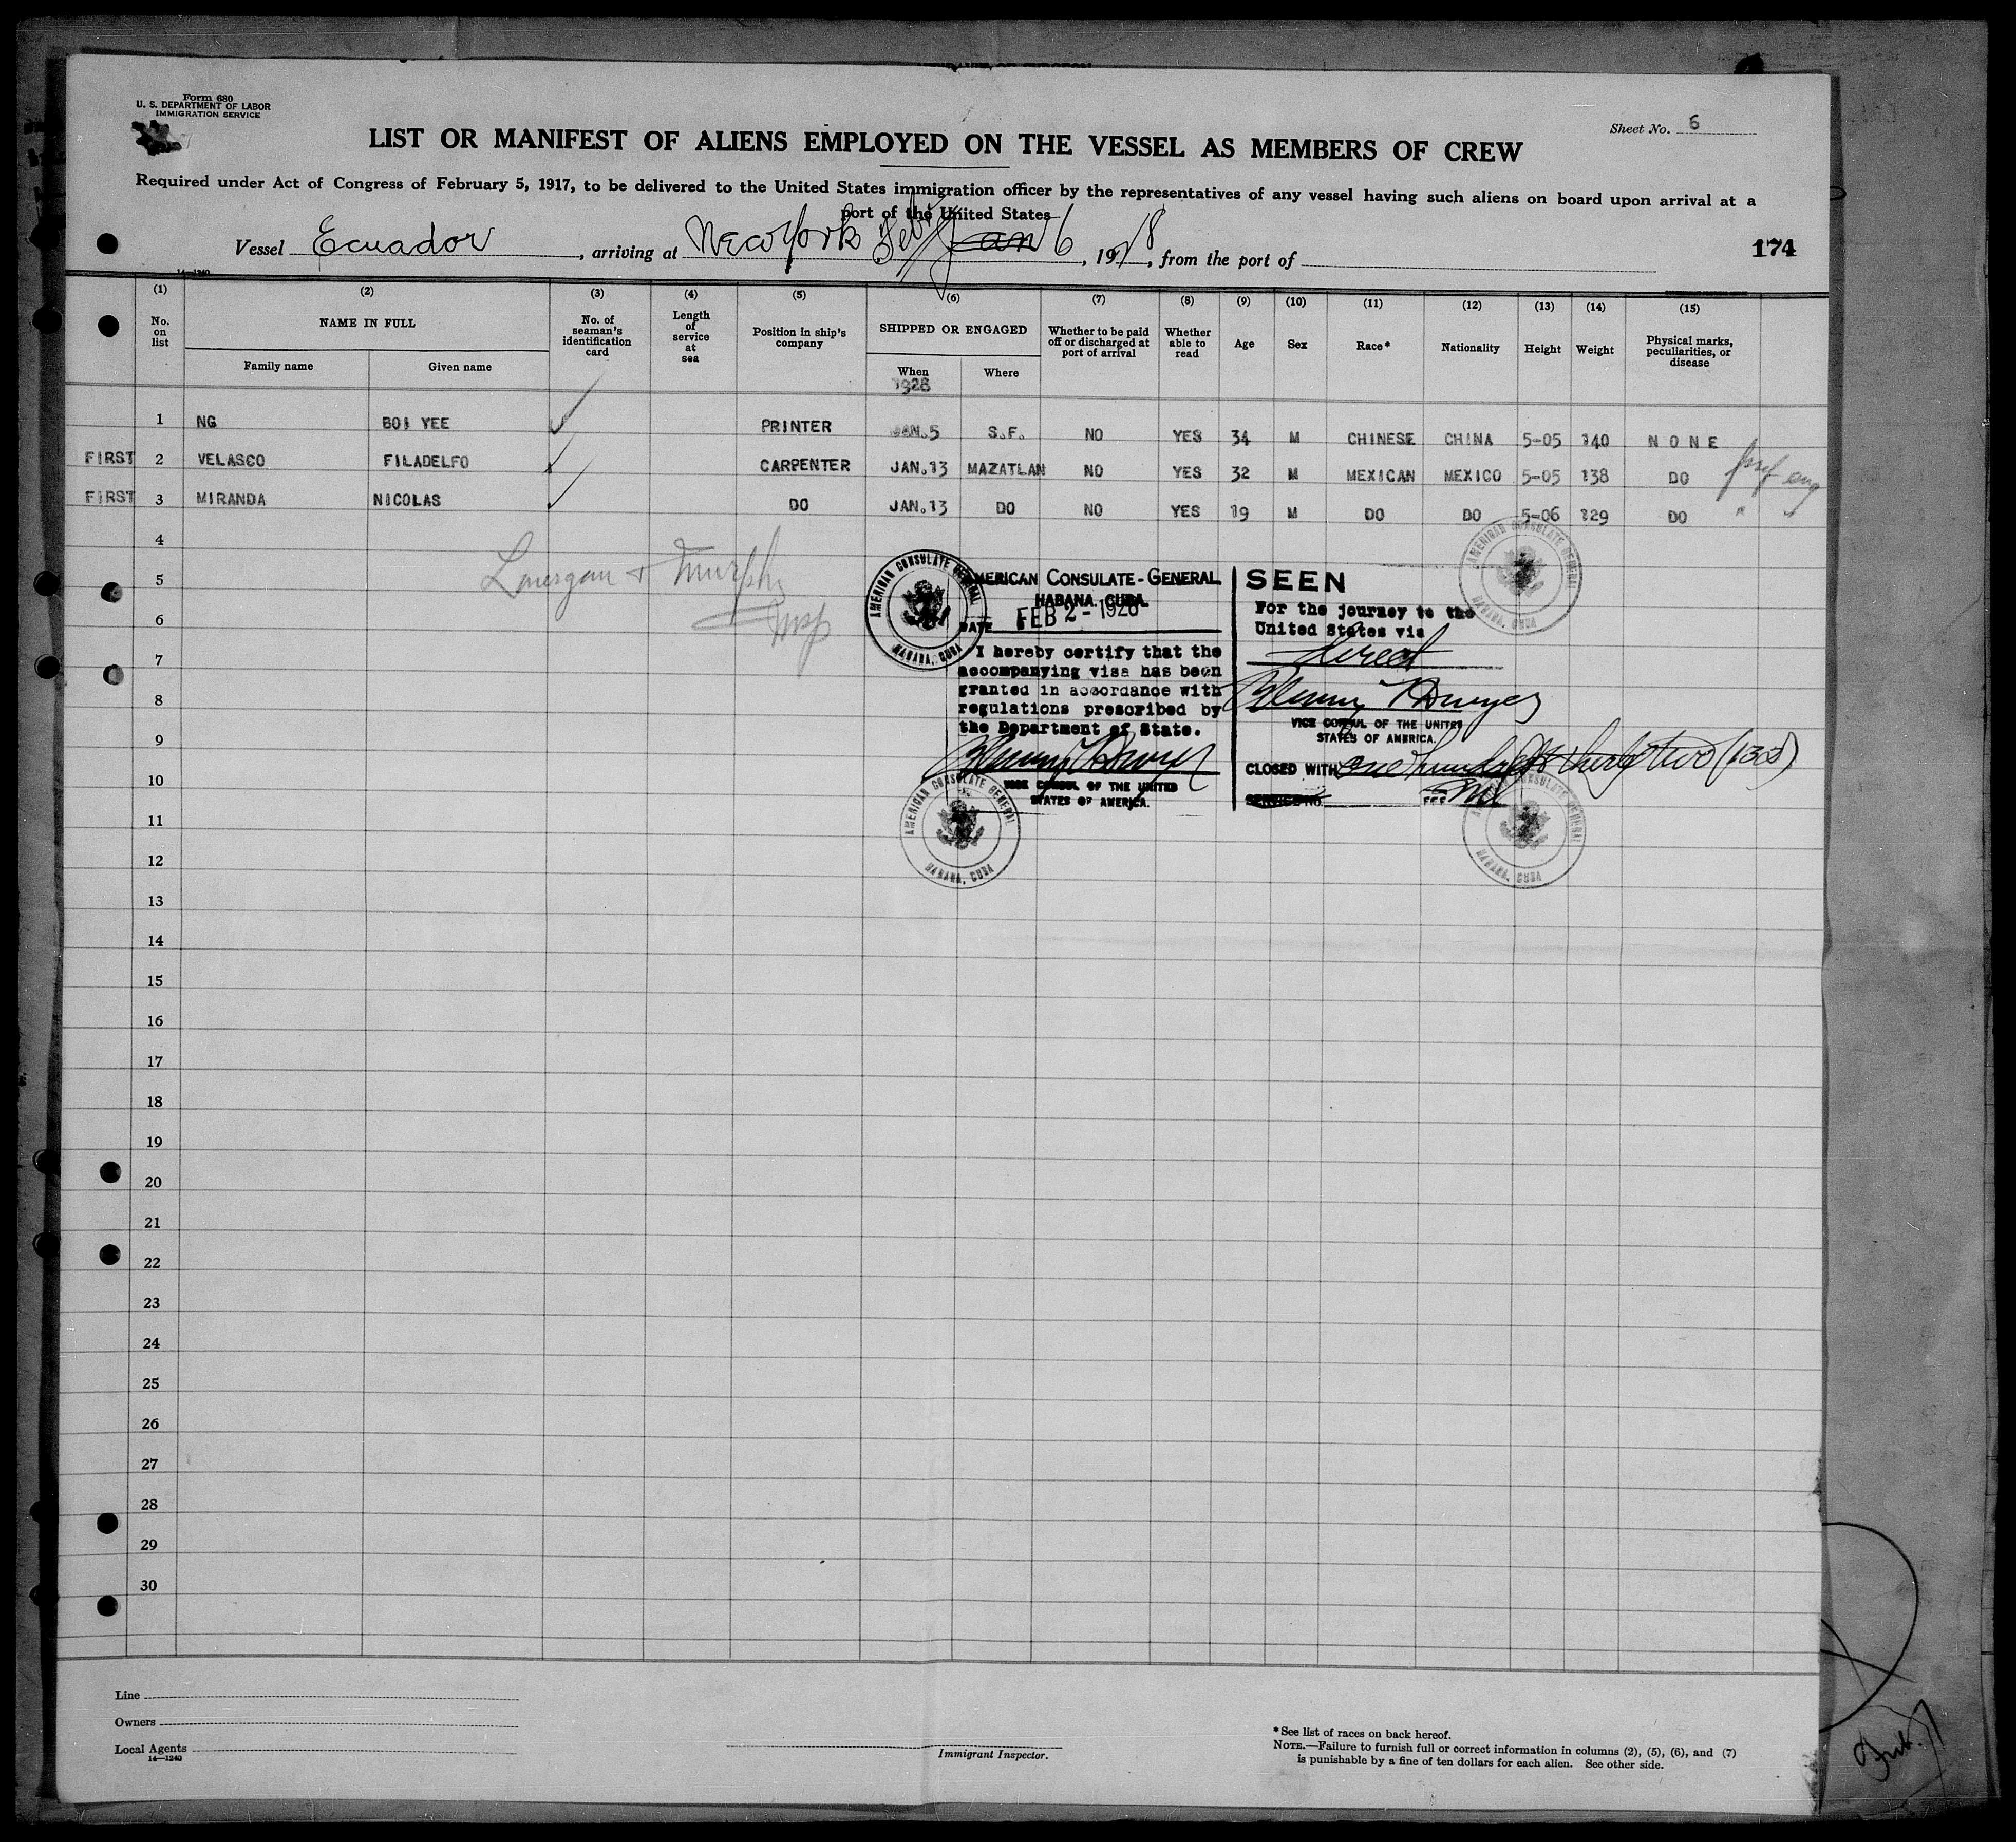 Form 680
U. S. DEPARTMENT OF LABOR
IMMIGRATION SERVICE
Sheet No. 6
LIST OR MANIFEST OF ALIENS EMPLOYED ON THE VESSEL AS MEMBERS OF CREW
Required under Act of Congress of February 5, 1917, to be delivered to the United States immigration officer by the representatives of any vessel having such aliens on board upon arrival at a
port of the United States
Vessel Ecuador, arriving at New York Feb Jan 6, 1928, from the port of
174
14—1240
(1) (2) (3) (4) (5) (6) (7) (8) (9) (10) (11) (12) (13) (14) (15)
No. on list
NAME IN FULL
Family name Given name
No. of seaman's identification card
Length of service at sea
Position in ship's company
SHIPPED OR ENGAGED
When Where
1928
Whether to be paid off or discharged at port of arrival
Whether able to read
Age
Sex
Race*
Nationality
Height
Weight
Physical marks, peculiarities, or disease
1 NG BOI YEE PRINTER JAN.5 S.F. NO YES 34 M CHINESE CHINA 5-05 140 NONE
FIRST 2 VELASCO FILADELFO CARPENTER JAN.13 MAZATLAN NO YES 32 M MEXICAN MEXICO 5-05 138 DO
FIRST 3 MIRANDA NICOLAS DO JAN.13 DO NO YES 19 M DO DO 5-06 129 DO " "
4
5
6
7
8
9
10
11
12
13
14
15
16
17
18
19
20
21
22
23
24
25
26
27
28
29
30
Lonergan & Murphy
Insp
AMERICAN CONSULATE GENERAL
HABANA, CUBA
AMERICAN CONSULATE-GENERAL
HABANA, CUBA.
DATE FEB 2 - 1928
I hereby certify that the
accompanying visa has been
granted in accordance with
regulations prescribed by
the Department of State.
VICE CONSUL OF THE UNITED
STATES OF AMERICA.
SEEN
For the journey to the
United States via
direct
VICE CONSUL OF THE UNITED
STATES OF AMERICA.
CLOSED WITH one hundred & thirty two
SERVICE NO. FEE
AMERICAN CONSULATE GENERAL
HABANA, CUBA
AMERICAN CONSULATE GENERAL
HABANA, CUBA
AMERICAN CONSULATE GENERAL
HABANA, CUBA
Line
Owners
Local Agents
14—1240
Immigrant Inspector.
*See list of races on back hereof.
NOTE.—Failure to furnish full or correct information in columns (2), (5), (6), and (7)
is punishable by a fine of ten dollars for each alien. See other side.